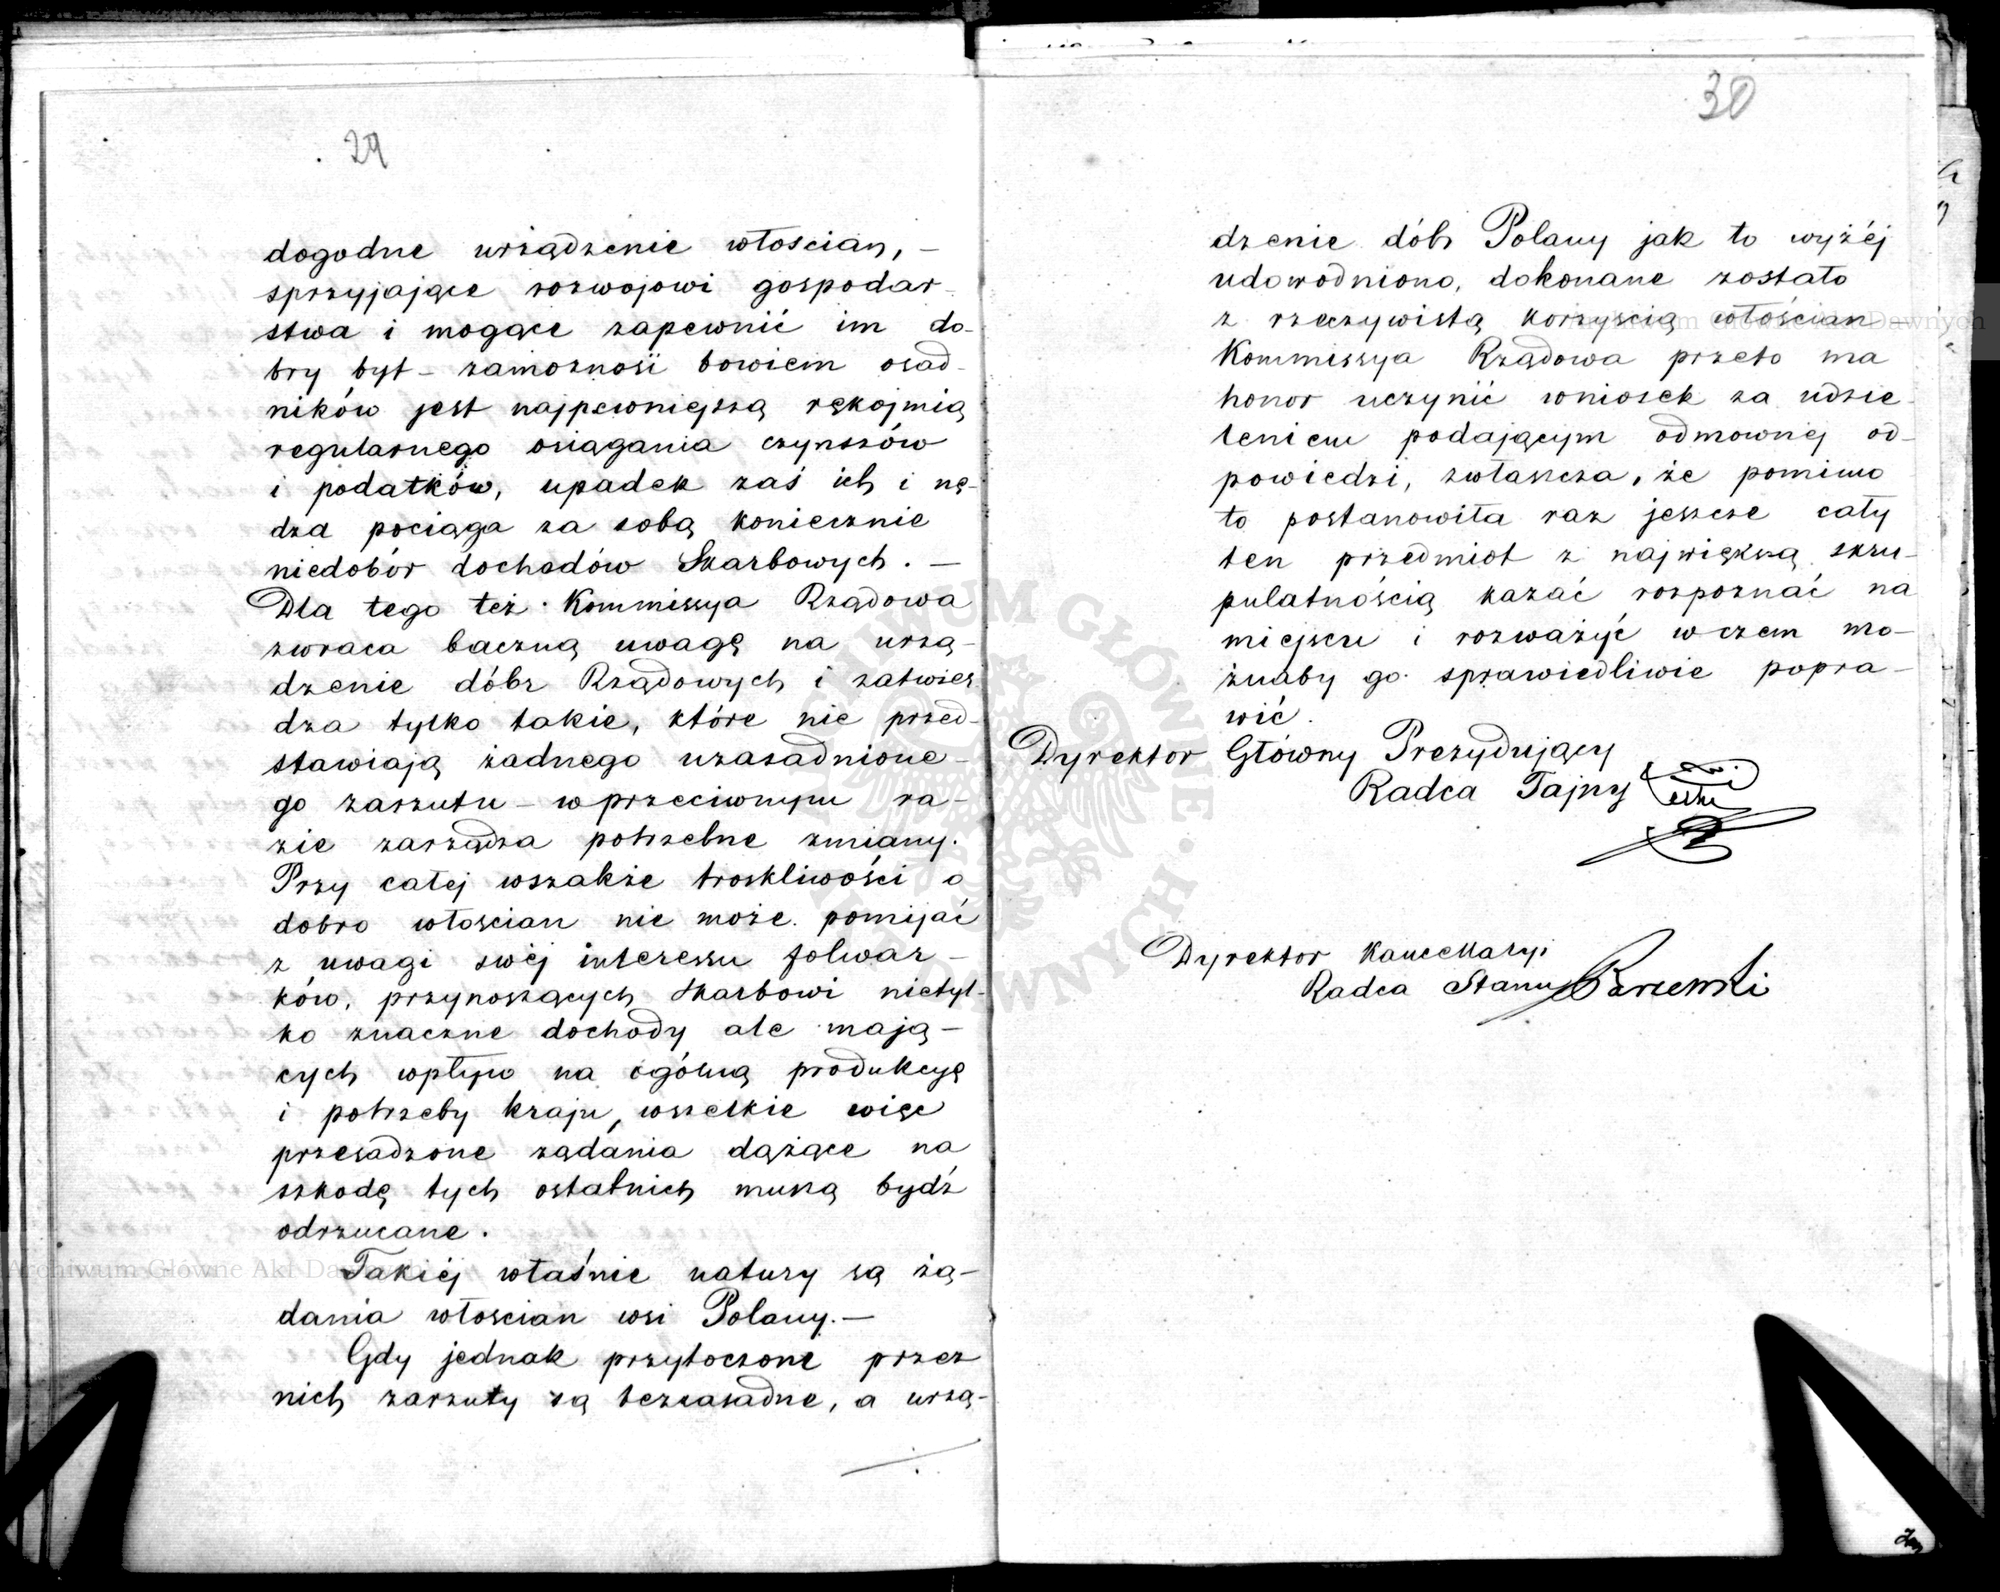 29
dogodne urządzenie włościan, –
sprzyjające rozwojowi gospodar-
stwa i mogące zapewnić im do-
bry byt – zamożność bowiem osad-
ników jest najpewniejszą rękojmią
regularnego osiągania czynszów
i podatków, upadek zaś ich i nę-
dza pociąga za sobą koniecznie
niedobór dochodów Skarbowych. –
Dla tego też Kommissya Rządowa
zwraca baczną uwagę na urzą-
dzenie dóbr Rządowych i zatwier
dza tylko takie, które nie przed-
stawiają żadnego uzasadnione-
go zarzutu – w przeciwnym ra-
zie zarządza potrzebne zmiany.
Przy całej wszakże troskliwości o
dobro włościan nie może pomijać
z uwagi swéj interessu folwar-
ków, przynoszących Skarbowi nietyl-
ko znaczne dochody ale mają-
cych wpływ na ogólną produkcyę
i potrzeby kraju, wszelkie więc
przesadzone żądania dążące na
szkodę tych ostatnich muszą bydź
odrzucane.
Takiéj właśnie natury są żą-
dania włościan wsi Polany. –
Gdy jednak przytoczone przez
nich zarzuty są bezzasadne, a urzą-
30
dzenie dóbr Polany jak to wyżéj
udowodniono, dokonane zostało
z rzeczywistą korzyścią włościan –
Kommissya Rządowa przeto ma
honor uczynić wniosek za udzie-
leniem podającym odmownej od-
powiedzi, zwłaszcza, że pomimo
to postanowiła raz jeszcze cały
ten przedmiot z największą skru-
pulatnością kazać rozpoznać na
miejscu i rozważyć w czem mo-
żnaby go sprawiedliwie popra-
wić.
Dyrektor Główny Prezydujący
Radca Tajny
Dyrektor Kancellaryi
Radca Stanu
Archiwum Główne Akt Dawnych